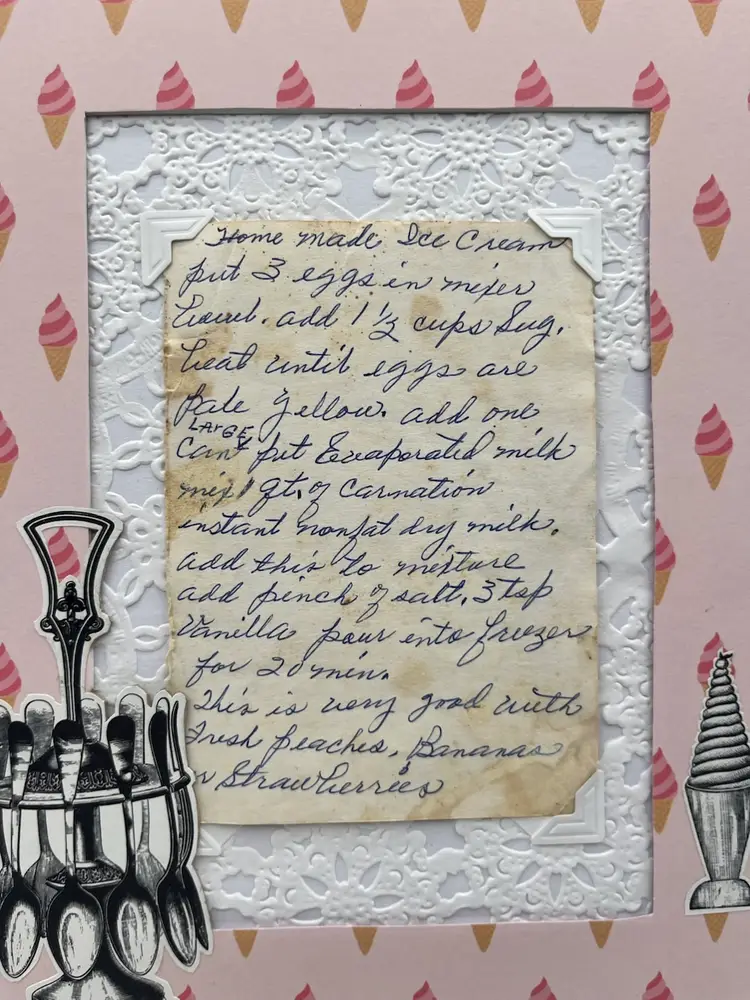 Home made Ice Cream
put 3 eggs in mixer
bowl. add 1 1/2 cups Sug.
beat until eggs are
pale yellow. add one
LARGE
can pet Evaporated milk
mix 1 qt. of Carnation
instant nonfat dry milk.
add this to mixture
add pinch of salt, 3 tsp
Vanilla pour into freezer
for 20 min.
This is very good with
Fresh peaches, Bananas
or Strawberries